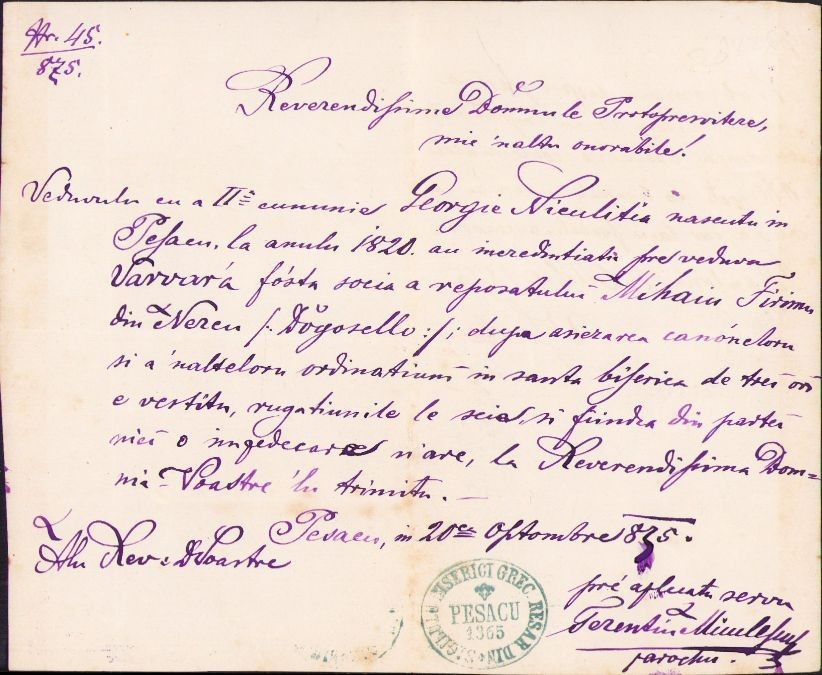 Nr. 45.
875.
Reverendissime Domnule Protopresvitere,
mie 'naltu onorabile!
Veduvulu cu a IIa cununie Georgie Niculitia nascutu in
Pesacu, la anulu 1820. au incredintiatu pre veduva
Varvar'a fósta socia a reposatului Mihaiu Firimu
din Nereu /: Dŏgosello :/; dupa asiezarea canóneloru
si a 'nalteloru ordinatiuni in santa biserica de trei ori
e vestitu, rugatiunile le scie, si fiindca din partea
nici o impedecare n'are, la Reverendissima Dom=
nia-Voastre 'lu trimitu. —
Pesacu, in 20ca Optombre 1875.
Alu Rev: D Voastre
pré aplecatu servu
Terentiu Miulescu
parochu.
SIGILUL BISERICI GREC. RESAR DIN
PESACU
1865